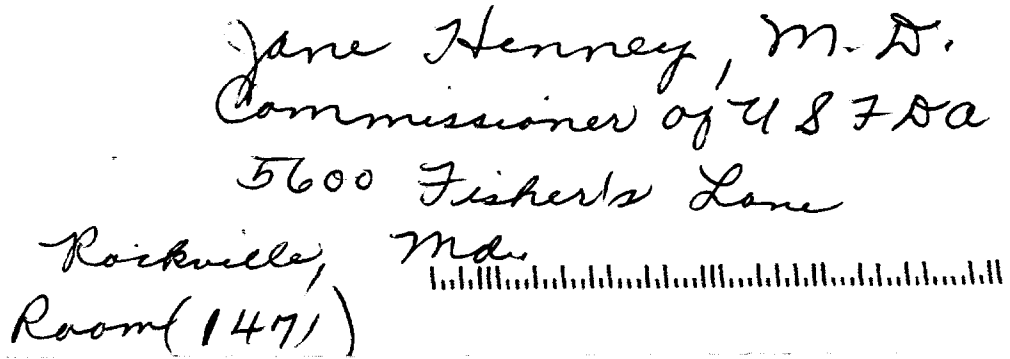 Jane Henney, M.D.
Commissioner of U S F D A
5600 Fisher's Lane
Rockville, Md.
Room (1471)